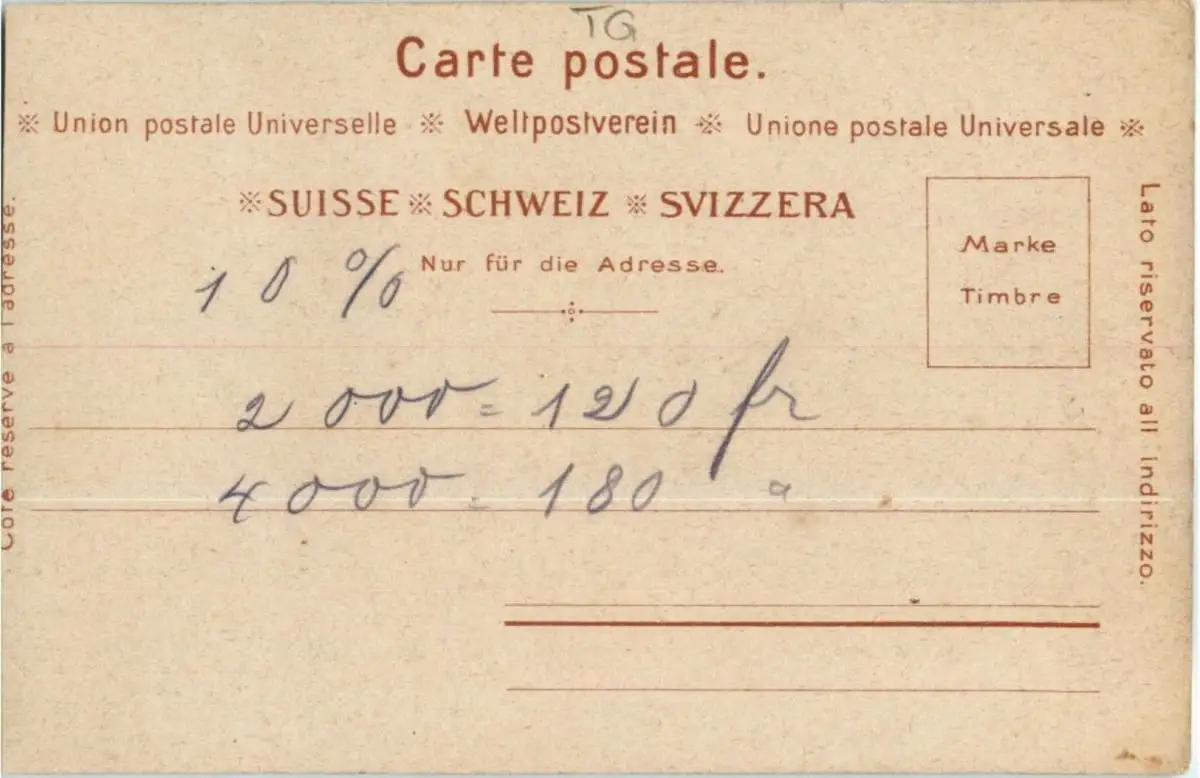 TG
Carte postale.
※ Union postale Universelle ※ Weltpostverein ※ Unione postale Universale ※
※ SUISSE ※ SCHWEIZ ※ SVIZZERA
Nur für die Adresse.
Marke
Timbre
10 %
2000 = 120 fr
4000 = 180 "
Côté réservé à l'adresse.
Lato riservato all indirizzo.